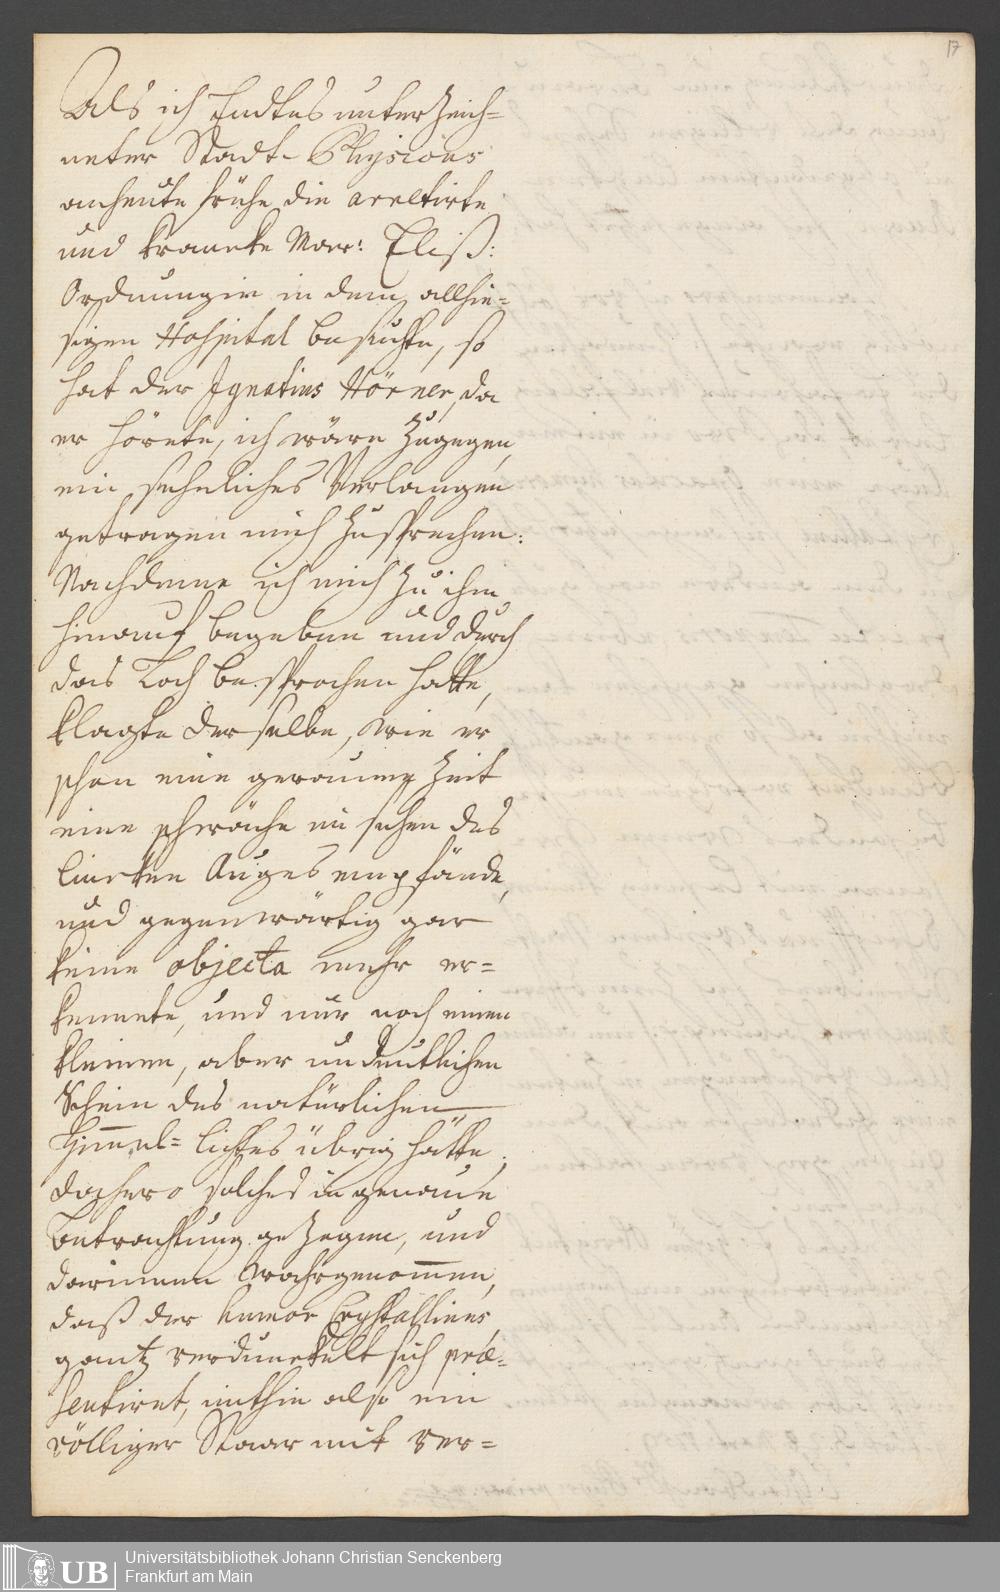 17
Als ich Endtes unterzeich=
neter Stadt-Physicus
anheute frühe die arrestirte
und krancke Mar: Eliß:
Ordnungin in dem allhie=
sigen Hospital besuchte, so
hat der Ignatius Hörner, da
er hörete, ich wäre zugegen,
ein sehnliches Verlangen
getragen mich zusprechen:
Nachdeme ich mich zu ihm
hinauf begeben und durch
das Loch besprochen hatte,
klagte derselbe, wie er
schon eine geraume Zeit
eine schwäche im sehen des
lincken Auges empfände,
und gegenwärtig gar
keine objecta mehr er=
kennete, und nur noch einen
kleinen, aber undeutlichen
Schein des natürlichen
Himmel=lichtes übrig hätte;
dahero solches in genaue
Betrachtung gezogen, und
darinnen wahrgenommen,
daß der humor Crystallinus
gantz verdunckelt sich præ=
sentiret, mithin also ein
völliger Staar mit ver=
UB
Universitätsbibliothek Johann Christian Senckenberg
Frankfurt am Main